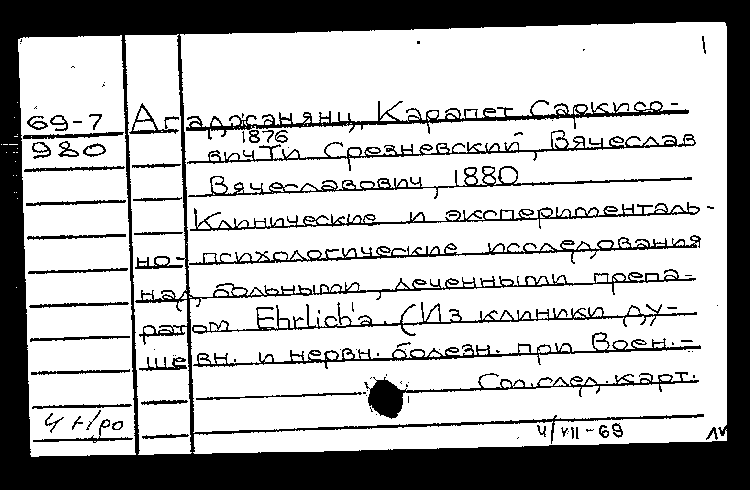 1
69-7 Агаджанянц, Карапет Саркисо-
1876
980 вич Ти Срезневский, Вячеслав
Вячеславович, 1880
Клинические и эксперименталь-
но-психологические исследования
над больными, леченными препа-
ратом Ehrlich'a. (Из клиники ду-
шевн. и нервн. болезн. при Воен.-
См. след. карт.
4/VII-69